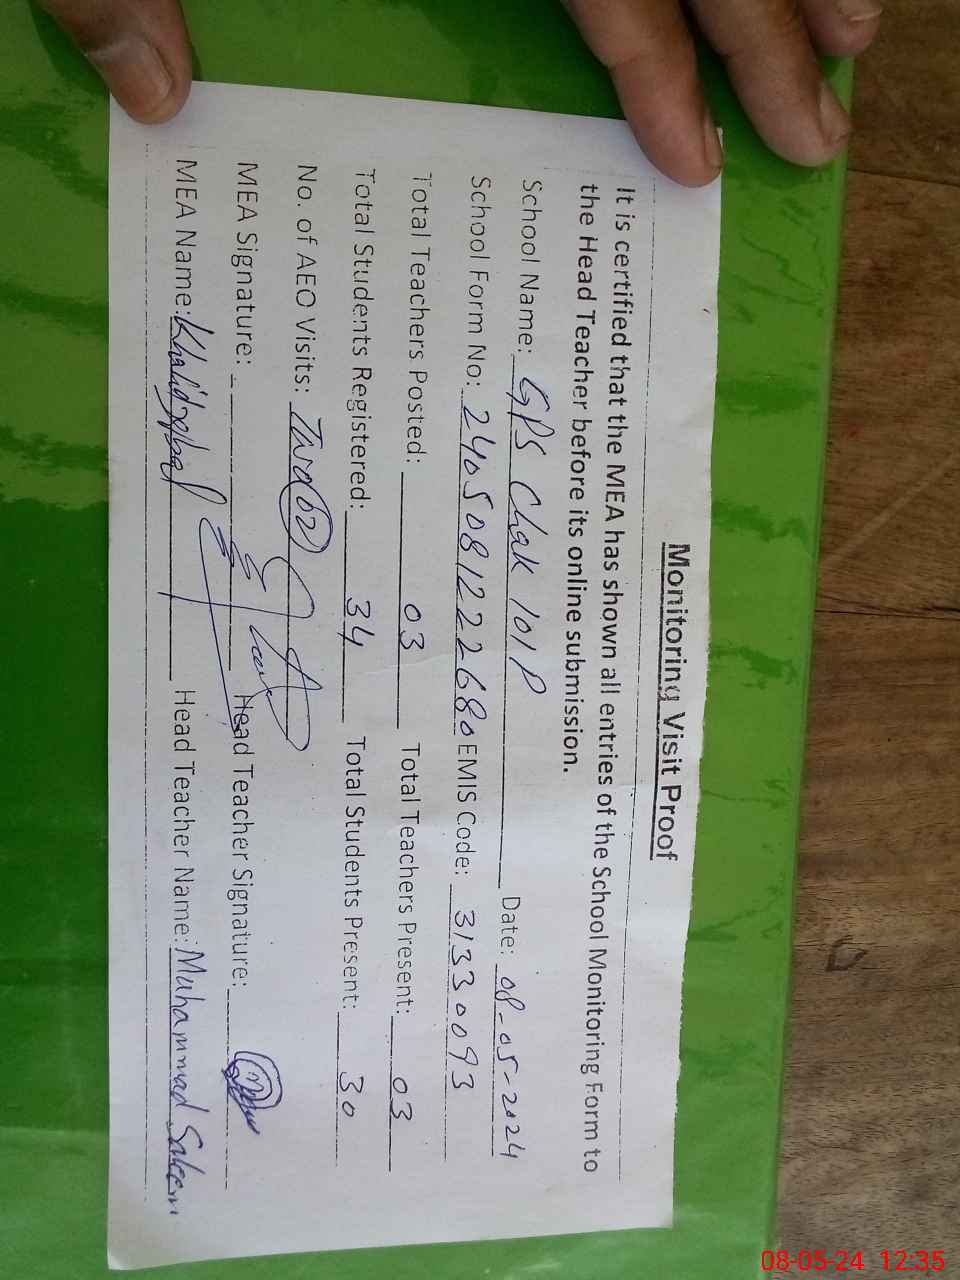 Monitoring Visit Proof
It is certified that the MEA has shown all entries of the School Monitoring Form to
the Head Teacher before its online submission.
School Name: GPS Chak 101 P Date: 08-05-2024
School Form No: 240508122268 0 EMIS Code: 31330093
Total Teachers Posted: 03 Total Teachers Present: 03
Total Students Registered: 34 Total Students Present: 30
No. of AEO Visits: Two (02)
MEA Signature: Head Teacher Signature:
MEA Name: Khalid Iqbal Head Teacher Name: Muhammad Saleem
08-05-24 12:35